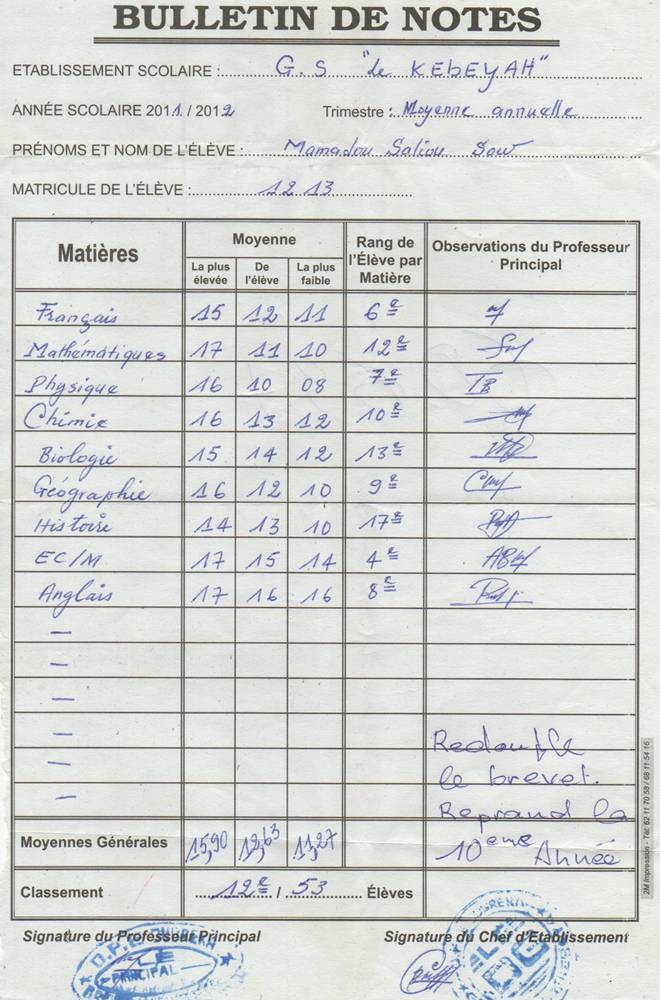 BULLETIN DE NOTES
ETABLISSEMENT SCOLAIRE : G.S "Le KEbEYAH"
ANNÉE SCOLAIRE 2011 / 2012 Trimestre : Moyenne annuelle
PRÉNOMS ET NOM DE L'ÉLÈVE : Mamadou Saliou Sow
MATRICULE DE L'ÉLÈVE : 1213
Matières Moyenne Rang de l'Élève par Matière Observations du Professeur Principal
La plus élevée De l'élève La plus faible
Français 15 12 11 6e
Mathématiques 17 11 10 12e
Physique 16 10 08 7e TB
Chimie 16 13 12 10e
Biologie 15 14 12 13e
Géographie 16 12 10 9e
Histoire 14 13 10 17e
EC/M 17 15 14 4e
Anglais 17 16 16 8e
—
—
—
—
—
Redouble
le brevet.
Reprand la
10eme Année
Moyennes Générales 15,90 12,63 11,27
Classement 12e / 53 Élèves
Signature du Professeur Principal Signature du Chef d'Etablissement
LE
PRINCIPAL
2M Impression - Tél: 62 11 70 58 / 68 11 54 16